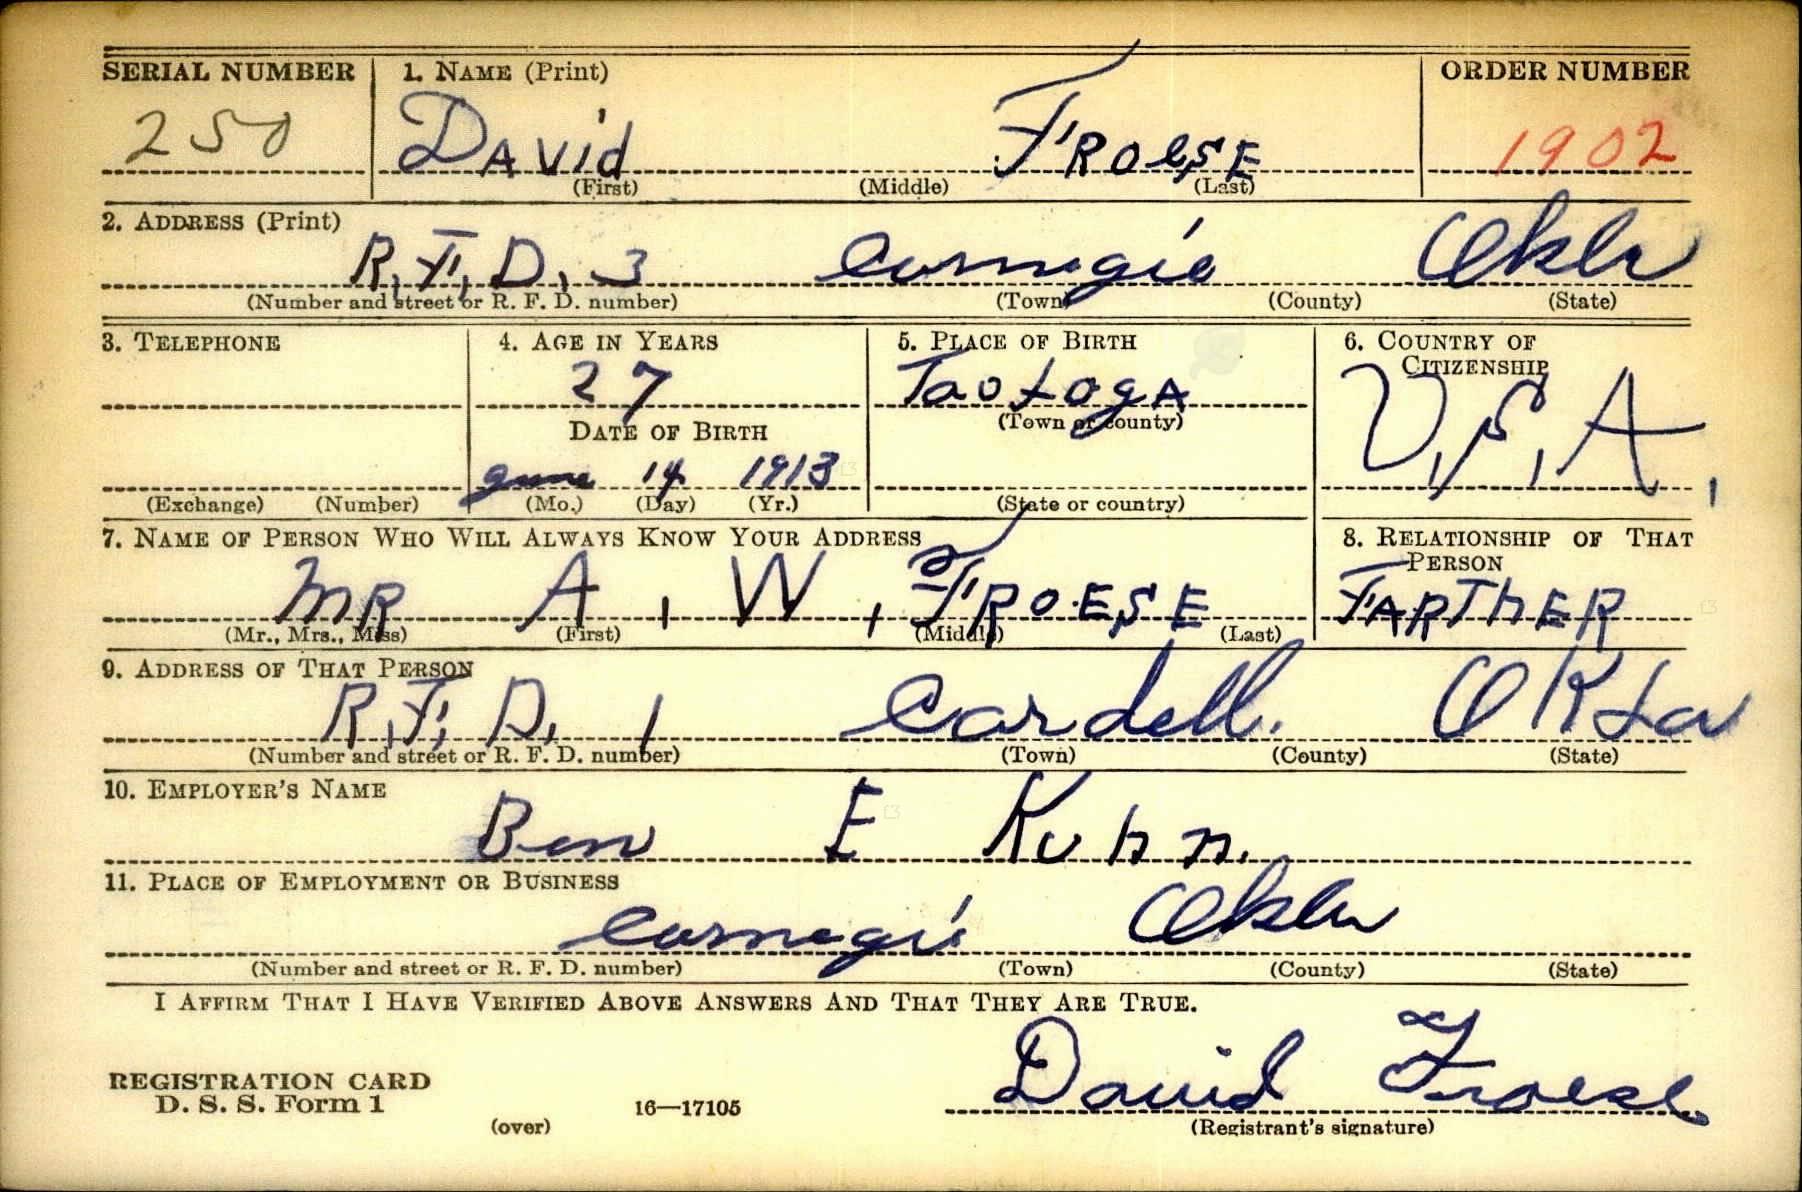 SERIAL NUMBER 1. NAME (Print) ORDER NUMBER
250 DAVid FROeSE 1902
(First) (Middle) (Last)
2. ADDRESS (Print)
R.F.D. 3 Carnegie Okla
(Number and street or R. F. D. number) (Town) (County) (State)
3. TELEPHONE 4. AGE IN YEARS 5. PLACE OF BIRTH 6. COUNTRY OF CITIZENSHIP
27 TaologA U.S.A.
DATE OF BIRTH (Town or county)
June 14 1913
(Exchange) (Number) (Mo.) (Day) (Yr.) (State or country)
7. NAME OF PERSON WHO WILL ALWAYS KNOW YOUR ADDRESS 8. RELATIONSHIP OF THAT PERSON
MR A. W. FROESE FARThER
(Mr., Mrs., Miss) (First) (Middle) (Last)
9. ADDRESS OF THAT PERSON
R.F.D. 1 Cordell. OKLa
(Number and street or R. F. D. number) (Town) (County) (State)
10. EMPLOYER'S NAME
Ben E Kuhn.
11. PLACE OF EMPLOYMENT OR BUSINESS
Carnegie Okla
(Number and street or R. F. D. number) (Town) (County) (State)
I AFFIRM THAT I HAVE VERIFIED ABOVE ANSWERS AND THAT THEY ARE TRUE.
David Froese
REGISTRATION CARD
D. S. S. Form 1 16—17105
(over) (Registrant's signature)